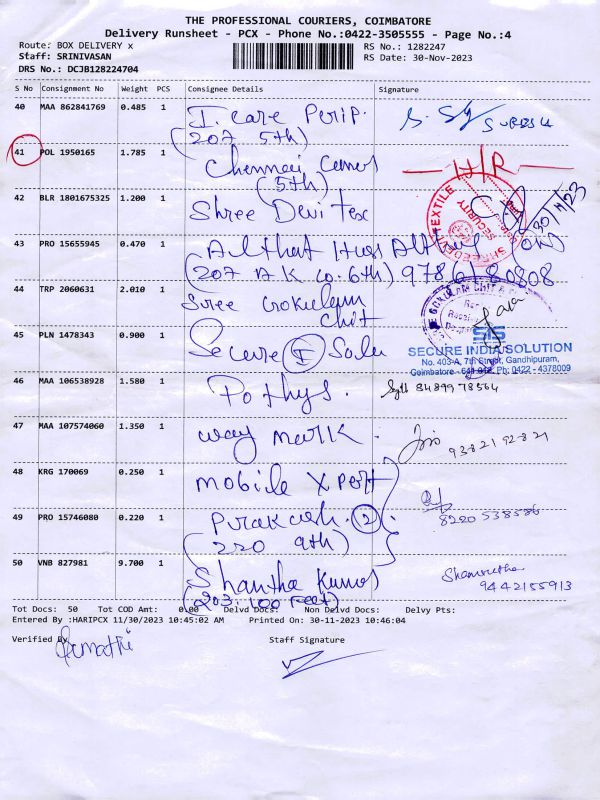 THE PROFESSIONAL COURIERS, COIMBATORE
Delivery Runsheet - PCX - Phone No.:0422-3505555 - Page No.:4
Route: BOX DELIVERY x RS No.: 1282247
Staff: SRINIVASAN RS Date: 30-Nov-2023
DRS No.: DCJB128224704
S No Consignment No Weight PCS Consignee Details Signature
40 MAA 862841769 0.485 1 I. care Perip.
(207 5th)
41 POL 1950165 1.785 1 Chennai H/R
(5th)
42 BLR 1801675325 1.200 1 Shree Devi Tex 30/11/23
43 PRO 15655945 0.470 1
(207 A K 6th)
44 TRP 2060631 2.010 1 Sree Gokulam
chit
45 PLN 1478343 0.900 1 Secure I Solu
SECURE INDIA SOLUTION
No. 403-A, 7th Street, Gandhipuram,
Coimbatore - Ph: 0422 - 4378009
46 MAA 106538928 1.580 1 Pothys. 8489978564
47 MAA 107574060 1.350 1 way mark. 93821 92821
48 KRG 170069 0.250 1 mobile Xpert
49 PRO 15746080 0.220 1 Prakash. 2 8220 538586
(220 9th)
50 VNB 827981 9.700 1 Shantha Kumar 9442155913
(203. 100 Feet)
Tot Docs: 50 Tot COD Amt: 0.00 Delvd Docs: Non Delvd Docs: Delvy Pts:
Entered By :HARIPCX 11/30/2023 10:45:02 AM Printed On: 30-11-2023 10:46:04
Verified By Staff Signature